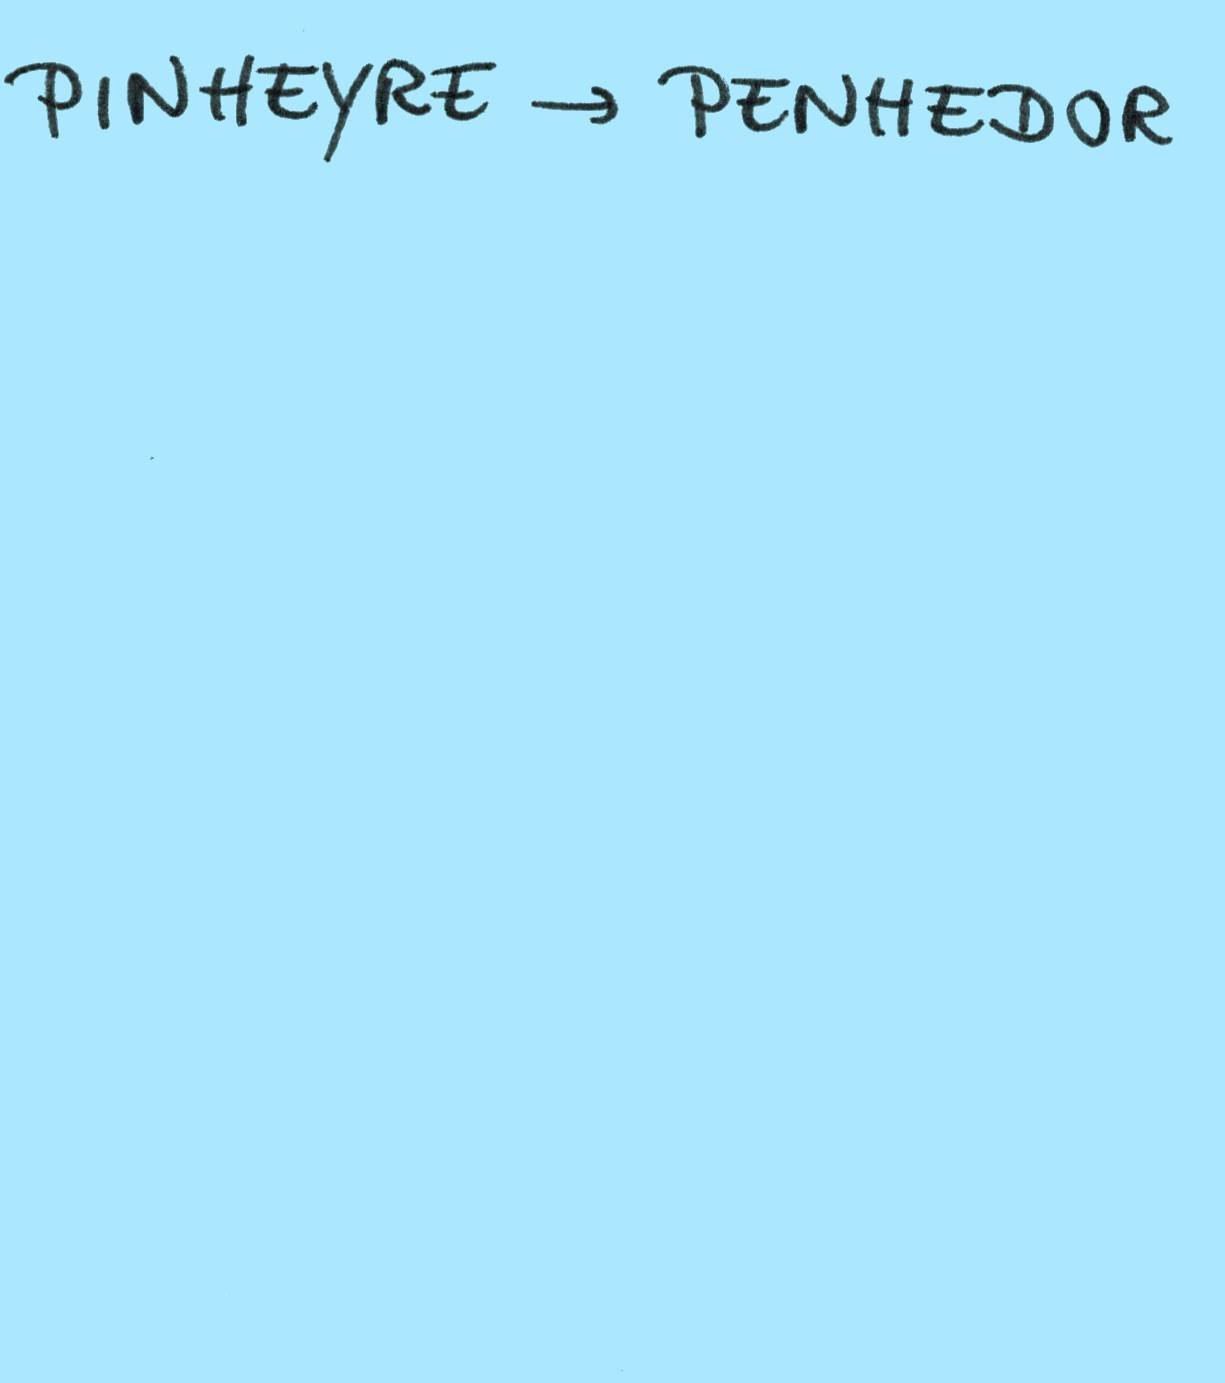 PINHEYRE → PENHEDOR